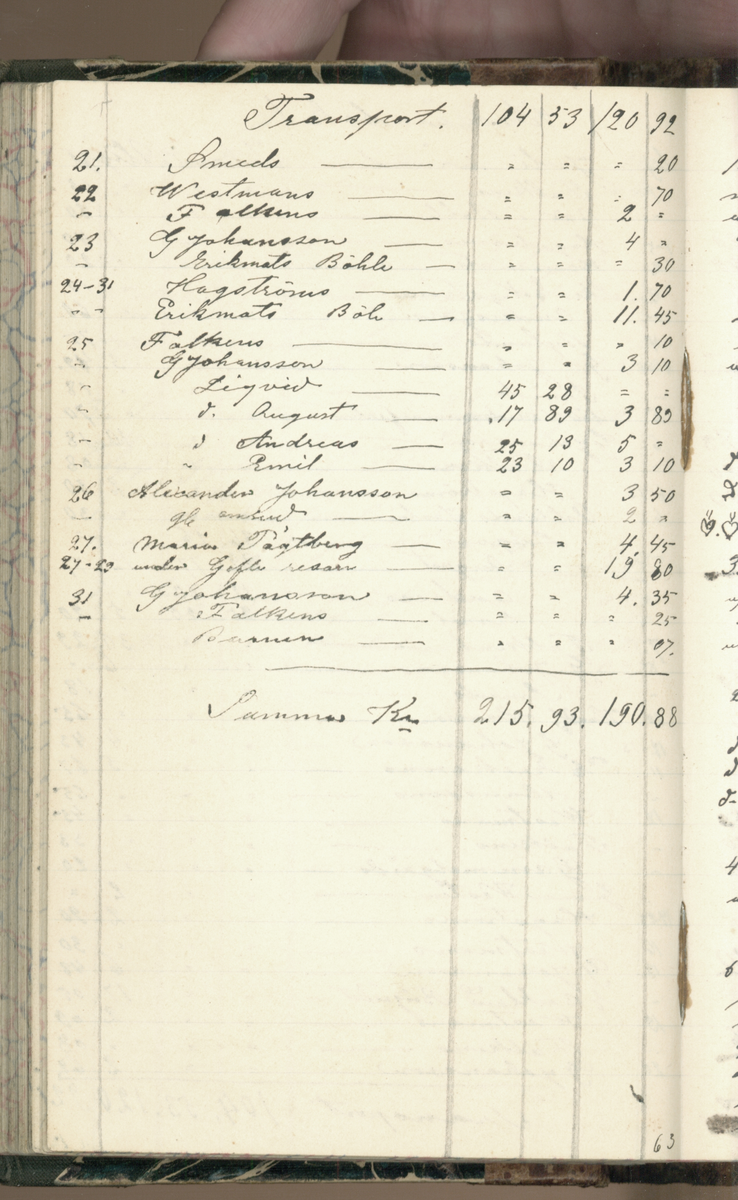 Transport. 104 53 120 92
21. Smeds — " " " 20
22 Westmans — " " " 70
" Falkens — " " 2 "
23 G Johansson — " " 4 "
" Erikmats Böhle — " " " 30
24-31 Hagströms — " " 1. 70
" " Erikmats Böle — " " 11. 45
25 Falkens — " " " 10
" G Johansson — " " 3 10
" Liqvid — 45 28 " "
" d. August — 17 89 3 89
" d Andreas — 25 13 5 "
" " Emil — 23 10 3 10
26 Alexander Johansson " " 3 50
" — " " 2 "
27. Maria — " " 4. 45
27-29 under Gefle resan — " " 19 80
31 G Johansson — " " 4. 35
" Falkens — " " " 25
Barnen — " " " 07.
Summa Kr 215. 93. 190. 88
63